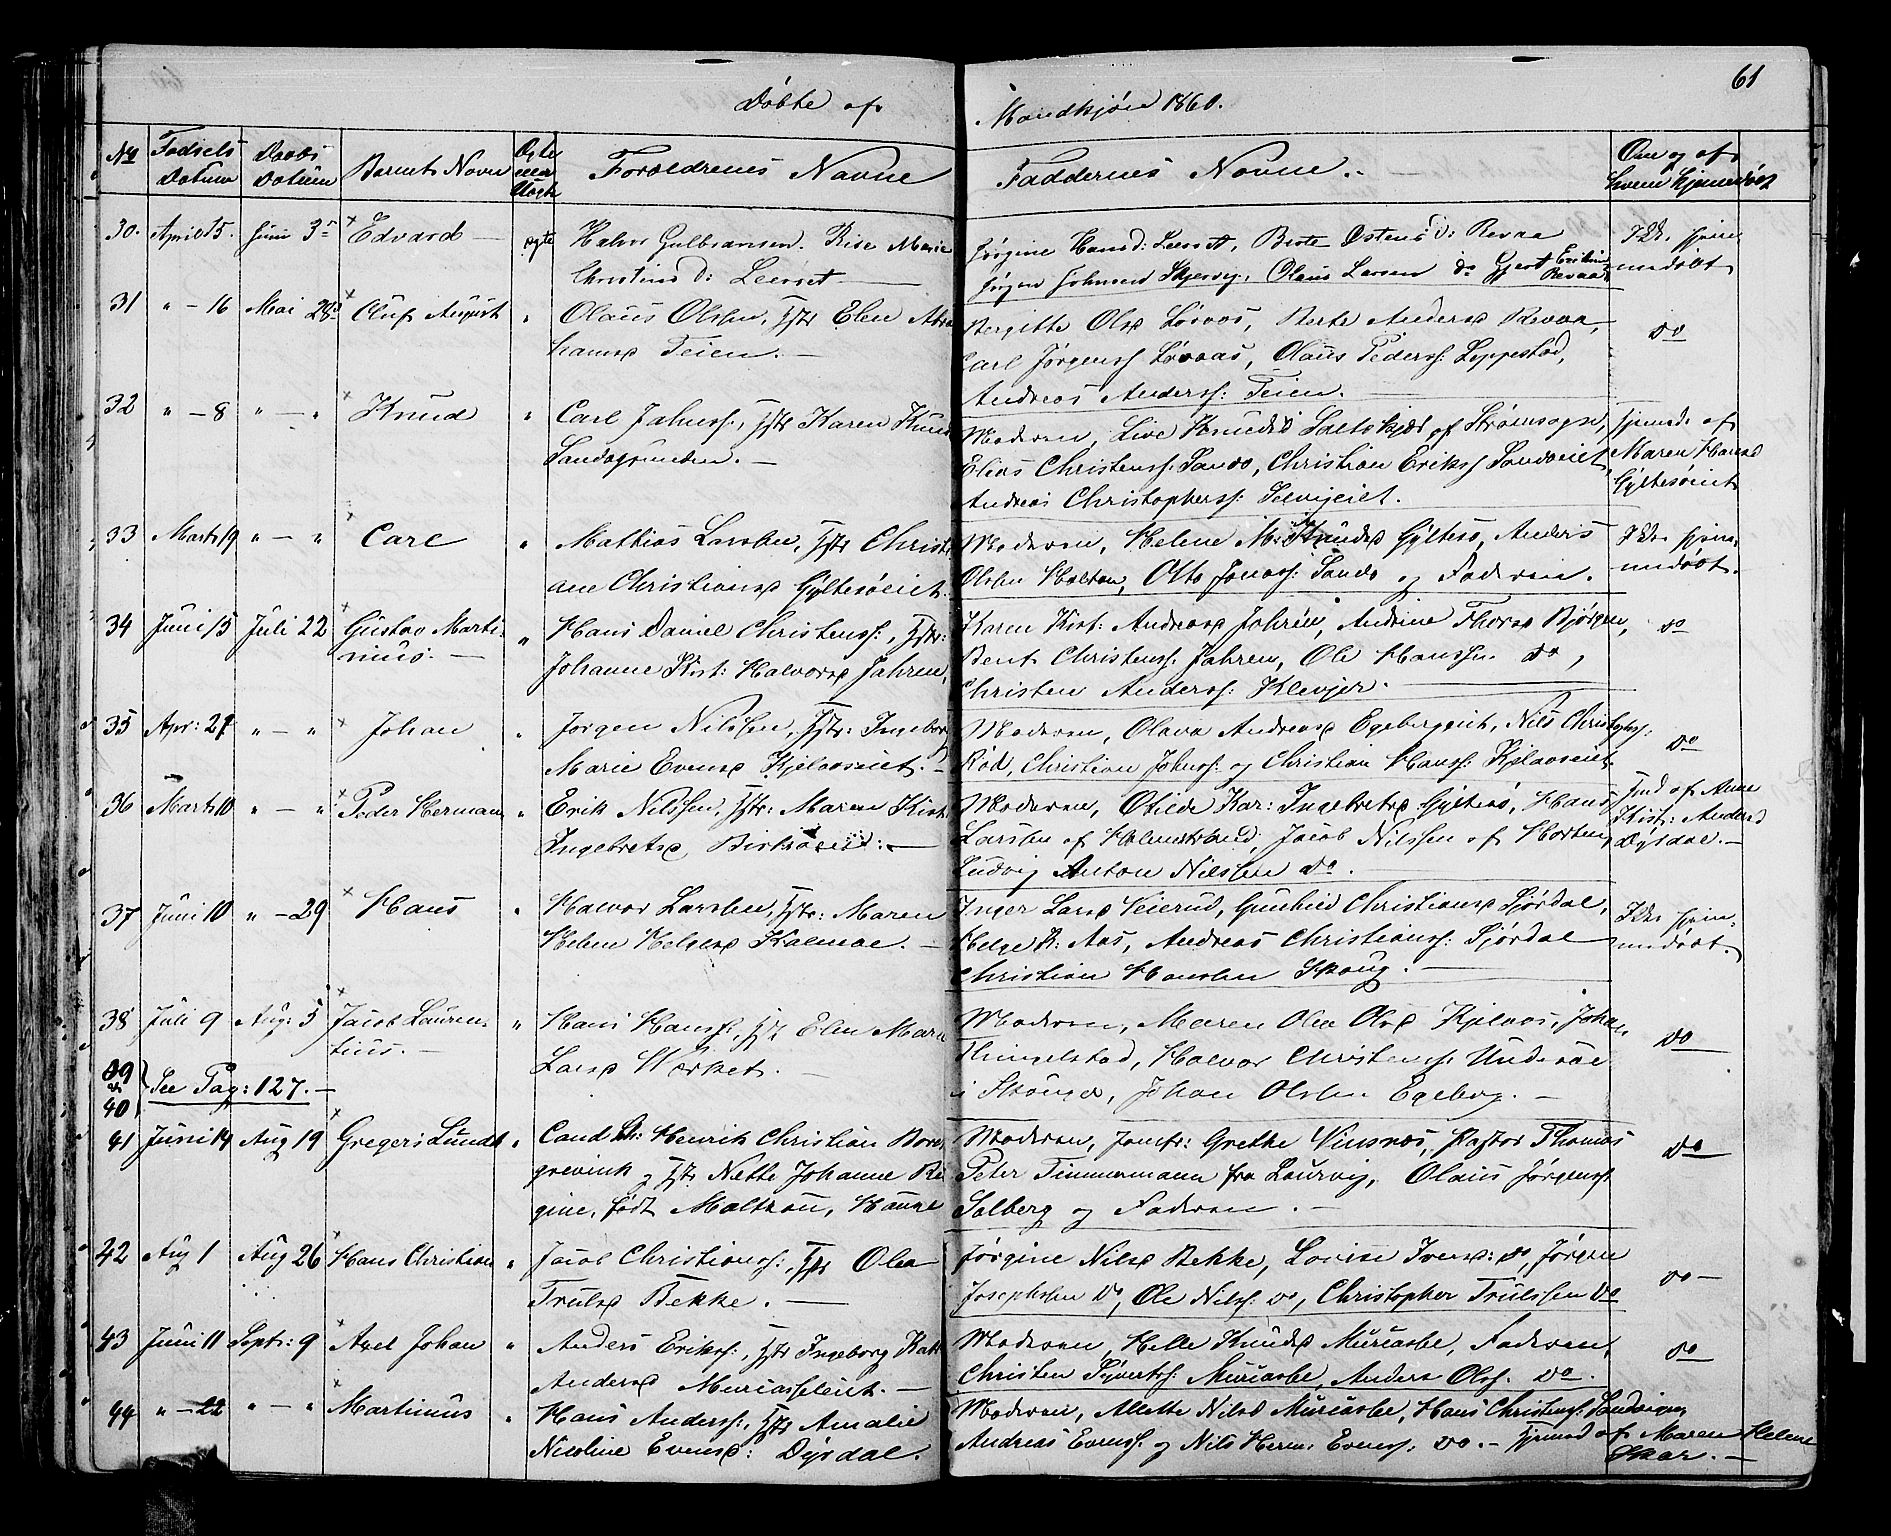 61
Døbte af Mandkjøn 1860.
No Fødsels Datum Daabs Datum Barnets Navn Ægte eller Uægte Forældrenes Navne Faddernes Navne. Om og af hvem hjemmedøbt
30. April 15. Juni 3 Edvard ægte Halvor Gulbransen. Marie
Christens d: Leerset
Jørgine Hansd: Leerset, Berte Ostens d: Revaa
Jørgen Johnsen Skjervig, Olaus Larsen do Gjert Revaa
Ikke hjem
medøbt
31 " - 16 Mai 28 Oluf August " Olaus Olssen, Hstr Elen Abra
hamsd Teien.
Bergitte Olsd Løvaas, Berte Andersd Revaa,
Carl Jørgenss Løvaas, Olaus Pederss: Leppestad,
Andreas Anderss: Teien.
do
32 " - 8 " - " Knud " Carl Johnss:, Hstr Karen Knud
Sandogrunden.
Moderen, Live Knudsd Saltskjær af Strømsogn,
Elias Christenss: Sando, Christian Erikss Sandoeiet,
Andreas Christopherss: Selvigeiet.
hjemd. af
Maren Hansd
Gyltesøeiet
33 Marts 19 " - " Carl " Mathias Larssen, Hstr Christi
ane Christiansd Gyltesøeiet.
Moderen, Helene M: Knudsd Gyltesø, Anders
Olssen Holtan, Otto Jonass: Sando og Faderen.
Ikke hjem
medøbt.
34 Juni 15 Juli 22 Gustav Marti
nius. " Hans Daniel Christenss:, Hstr:
Johanne Kirst: Halvorsd Jahren,
Karen Kirst: Andreasd Jahren, Andrine Thorsd Bjørgen,
Bent Christenss: Jahren, Ole Hanssen do,
Christen Anderss: Klevjer.
do
35 Apr: 27 " - " Johan " Jørgen Nilssen, Hstr: Ingeborg
Marie Evensd Kjelaaseiet.
Moderen, Olava Andreasd Egebergeiet, Nils Christophss:
Rød, Christian Johnss: og Christian Hanss: Kjelaaseiet
do
36 Marts 10 " - " Peder Herman " Erik Nilssen, Hstr: Maren Kirst
Ingebretsd
Moderen, Otilde Kar: Ingebretsd Gyltesø, Hans
Larssen af Holmestrand, Jacob Nilssen af Horten,
Ludvig Anton Nilssen do.
hmd af Anne
Kist: Andersd
Dysdal.
37 Juni 10 " - 29 Hans " Halvor Larssen, Hstr: Maren
Helene Helgesd Kalmoe.
Inger Larsd Veierud, Gunhild Christiansd Fjørdal,
Helge R: Aas, Andreas Christianss: Fjørdal
Christian Hanssen Skoug.
Ikke hjem
medøbt.
38 Juli 9 Aug: 5 Jacob Lauren
tius. " Hans Hanss:, Hstr Elen Marie
Larsd Værket.
Moderen, Maren Olea Olsd Kjelaas, Johan
Thingelstad, Halvor Christenss: Underaae
i Skouger, Johan Olssen Egeberg.
do
39
og
40 See Pag: 127.
41 Juni 14 Aug 19 Gregers Lund " Cand Henrik Christian Borch
grevink og Hstr Nette Johanne Re
gine, født Maltzau, Hauge
Moderen, Jomfr: Grethe Vinsnes, Pastor Thomas
Peter Timmermann fra Laurvig, Olaus Jørgenss
Solberg og Faderen.
do
42 Aug 1 Aug 26 Hans Christian " Jacob Christianss:, Hstr Olea
Trulsd Bekke.
Jørgine Nilsd Bekke, Lovise Iversd: do, Jørgen
Josephsen do, Ole Nilss: do, Christopher Trulssen do
do
43 Juni 11 Septr: 9 Axel Johan " Anders Erikss:, Hstr Ingeborg Kath
Andersd Muriasseleiet.
Moderen, Helle Knudsd Muriasbe, Faderen,
Christen Syverts: Muriasbe, Anders Olss. do.
do
44 " - 22 " - " Martinius " Hans Anderss:, Hstr Amalie
Nicoline Evensd: Dysdal.
Moderen, Allette Nilsd Muriasbe, Hans Christenss: Sandvigen,
Andreas Evenss: og Nils Herm: Evenss: do. - hjemmd af Maren Helene
Skar.